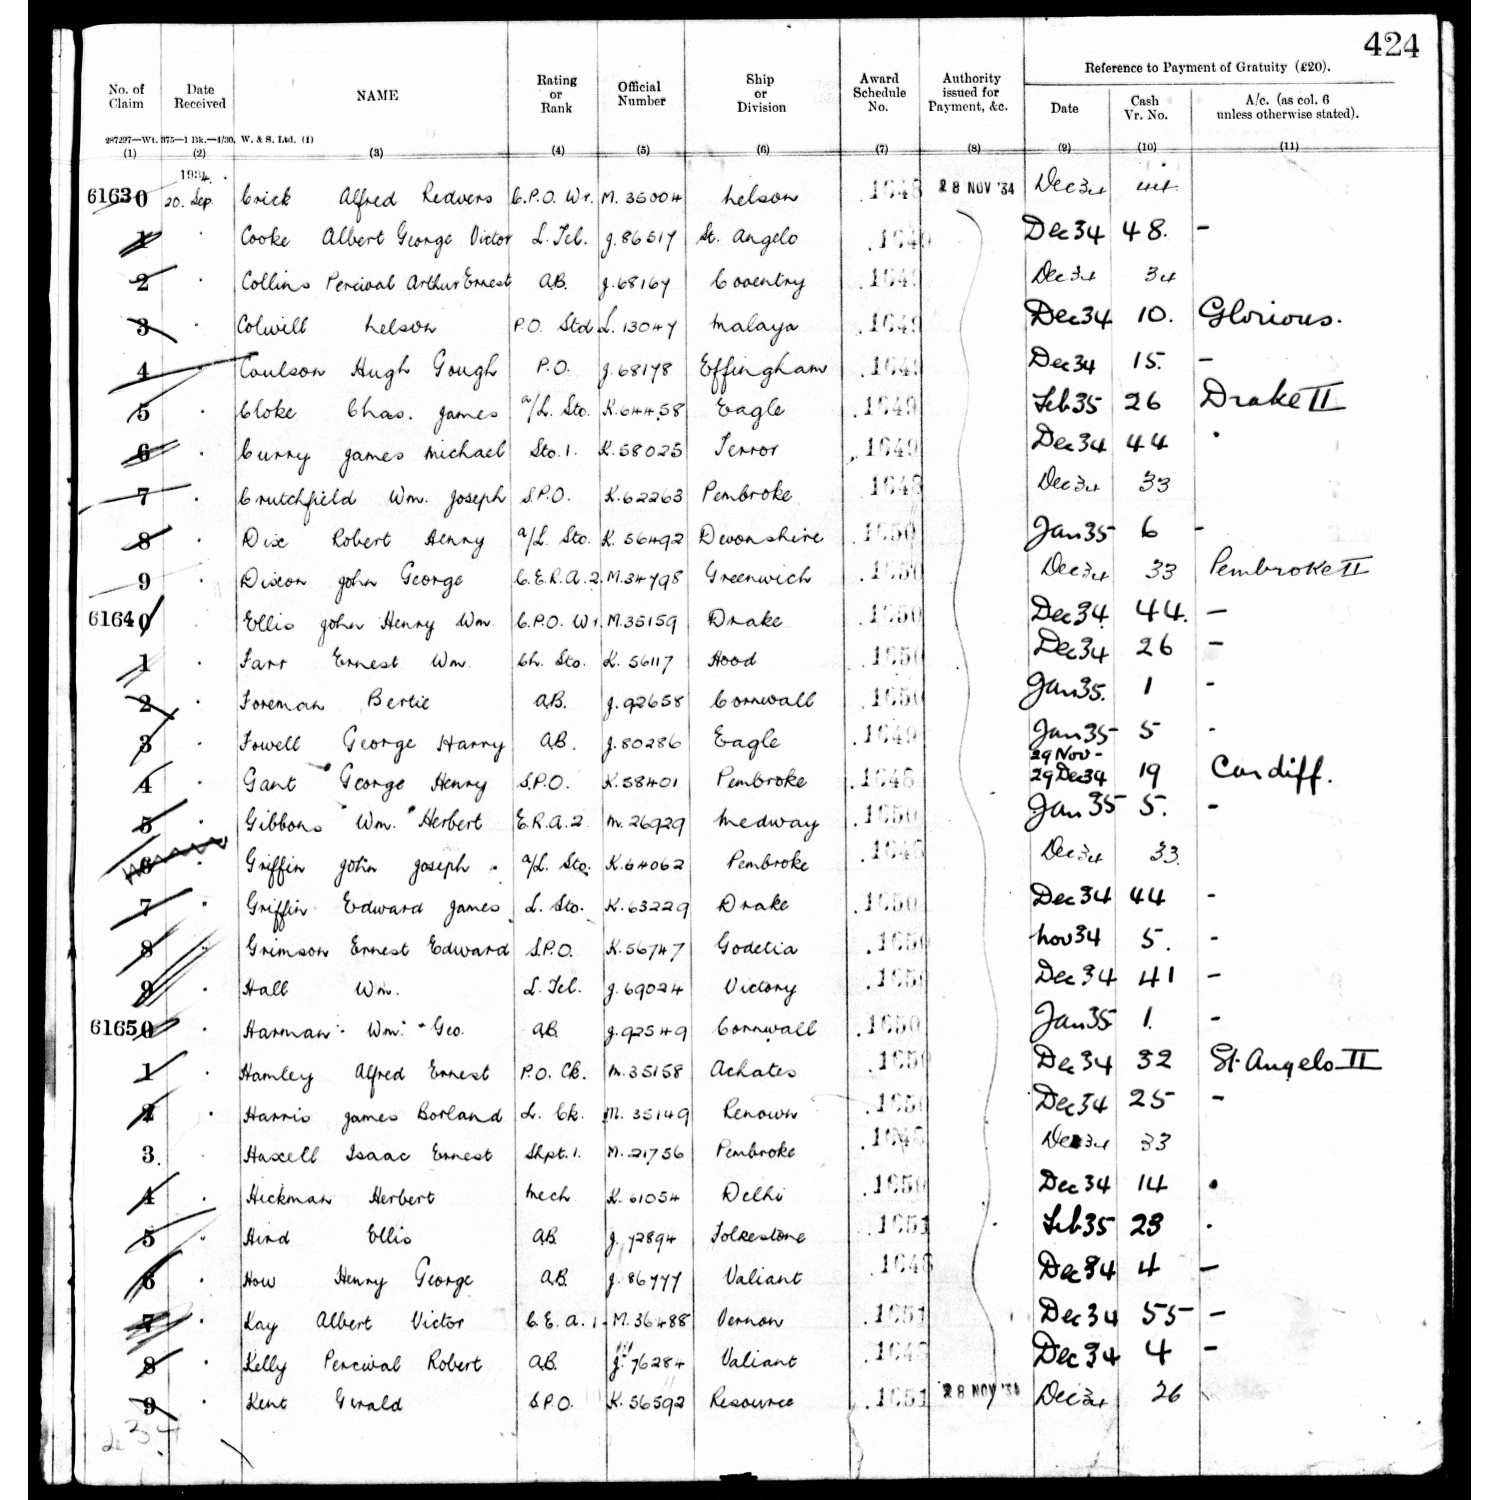 424
No. of Claim Date Received NAME Rating or Rank Official Number Ship or Division Award Schedule No. Authority issued for Payment, &c. Reference to Payment of Gratuity (£20).
Date Cash Vr. No. A/c. (as col. 6 unless otherwise stated).
287297—Wt. 375—1 Bk.—4/30. W. & S. Ltd. (1)
(1) (2) (3) (4) (5) (6) (7) (8) (9) (10) (11)
1934.
61630 20. Sep. Crick Alfred Redvers C.P.O. Wr. M. 35004 Nelson 1648 28 NOV '34 Dec 34 44
1 Cooke Albert George Victor L. Tel. J. 86517 St. Angelo 1649 Dec 34 48. -
2 Collins Percival Arthur Ernest A.B. J. 68167 Coventry 1649 Dec 34 34
3 Colwill Nelson P.O. Std L. 13047 Malaya 1649 Dec 34 10. Glorious.
4 Coulson Hugh Gough P.O. J. 68178 Effingham 1649 Dec 34 15. -
5 Cloke Chas. James a/L. Sto. K. 64458 Eagle 1649 Feb 35 26 Drake II
6 Curry James Michael Sto. 1. K. 58025 Terror 1649 Dec 34 44
7 Crutchfield Wm. Joseph S.P.O. K. 62263 Pembroke 1648 Dec 34 33
8 Dix Robert Henry a/L. Sto. K. 56492 Devonshire 1650 Jan 35 6 -
9 Dixon John George C.E.R.A. 2 M. 34798 Greenwich 1650 Dec 34 33 Pembroke II
61640 Ellis John Henry Wm. C.P.O. Wr. M. 35159 Drake 1650 Dec 34 44. -
1 Farr Ernest Wm. Ch. Sto. K. 56117 Hood 1650 Dec 34 26 -
2 Foreman Bertie A.B. J. 92658 Cornwall 1650 Jan 35. 1 -
3 Fowell George Harry A.B. J. 80286 Eagle 1649 Jan 35 5 -
29 Nov -
4 Gant George Henry S.P.O. K. 58401 Pembroke 1648 29 Dec 34 19 Cardiff.
5 Gibbons Wm. Herbert E.R.A. 2 M. 26929 Medway 1650 Jan 35 5. -
6 Griffin John Joseph a/L. Sto. K. 64062 Pembroke 1648 Dec 34 33.
7 Griffin Edward James L. Sto. K. 63229 Drake 1650 Dec 34 44 -
8 Grimson Ernest Edward S.P.O. K. 56747 Godetia 1650 Nov 34 5. -
9 Hall Wm. L. Tel. J. 69024 Victory 1650 Dec 34 41 -
61650 Harman Wm. Geo. A.B. J. 92549 Cornwall 1650 Jan 35 1. -
1 Hamley Alfred Ernest P.O. Ck. M. 35158 Achates 1650 Dec 34 32 St. Angelo II
2 Harris James Borland L. Ck. M. 35149 Renown 1650 Dec 34 25 -
3. Haxell Isaac Ernest Shpt. 1. M. 21756 Pembroke 1648 Dec 34 33
4 Hickman Herbert Mech K. 61054 Delhi 1650 Dec 34 14
5 Hind Ellis A.B. J. 72894 Folkestone 1651 Feb 35 23
6 How Henry George A.B. J. 86777 Valiant 1648 Dec 34 4 -
7 Kay Albert Victor C.E.A. 1 M. 36488 Vernon 1651 Dec 34 55 -
8 Kelly Percival Robert A.B. J. 76284 Valiant 1648 Dec 34 4 -
9 Kent Gerald S.P.O. K. 56592 Resource 1651 28 NOV '34 Dec 34 26